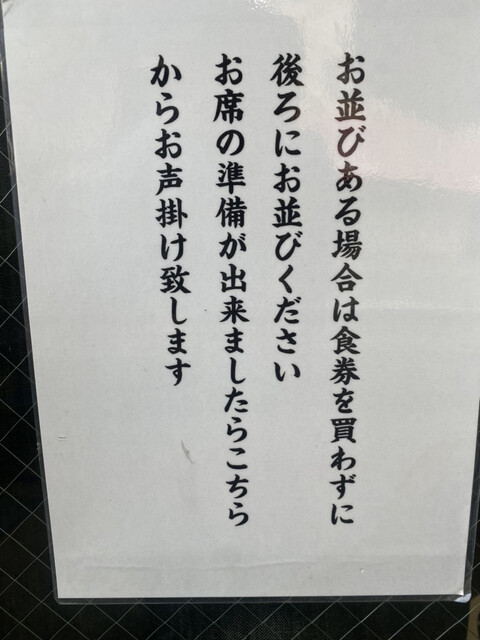 お並びある場合は食券を買わずに
後ろにお並びください
お席の準備が出来ましたらこちら
からお声掛け致します